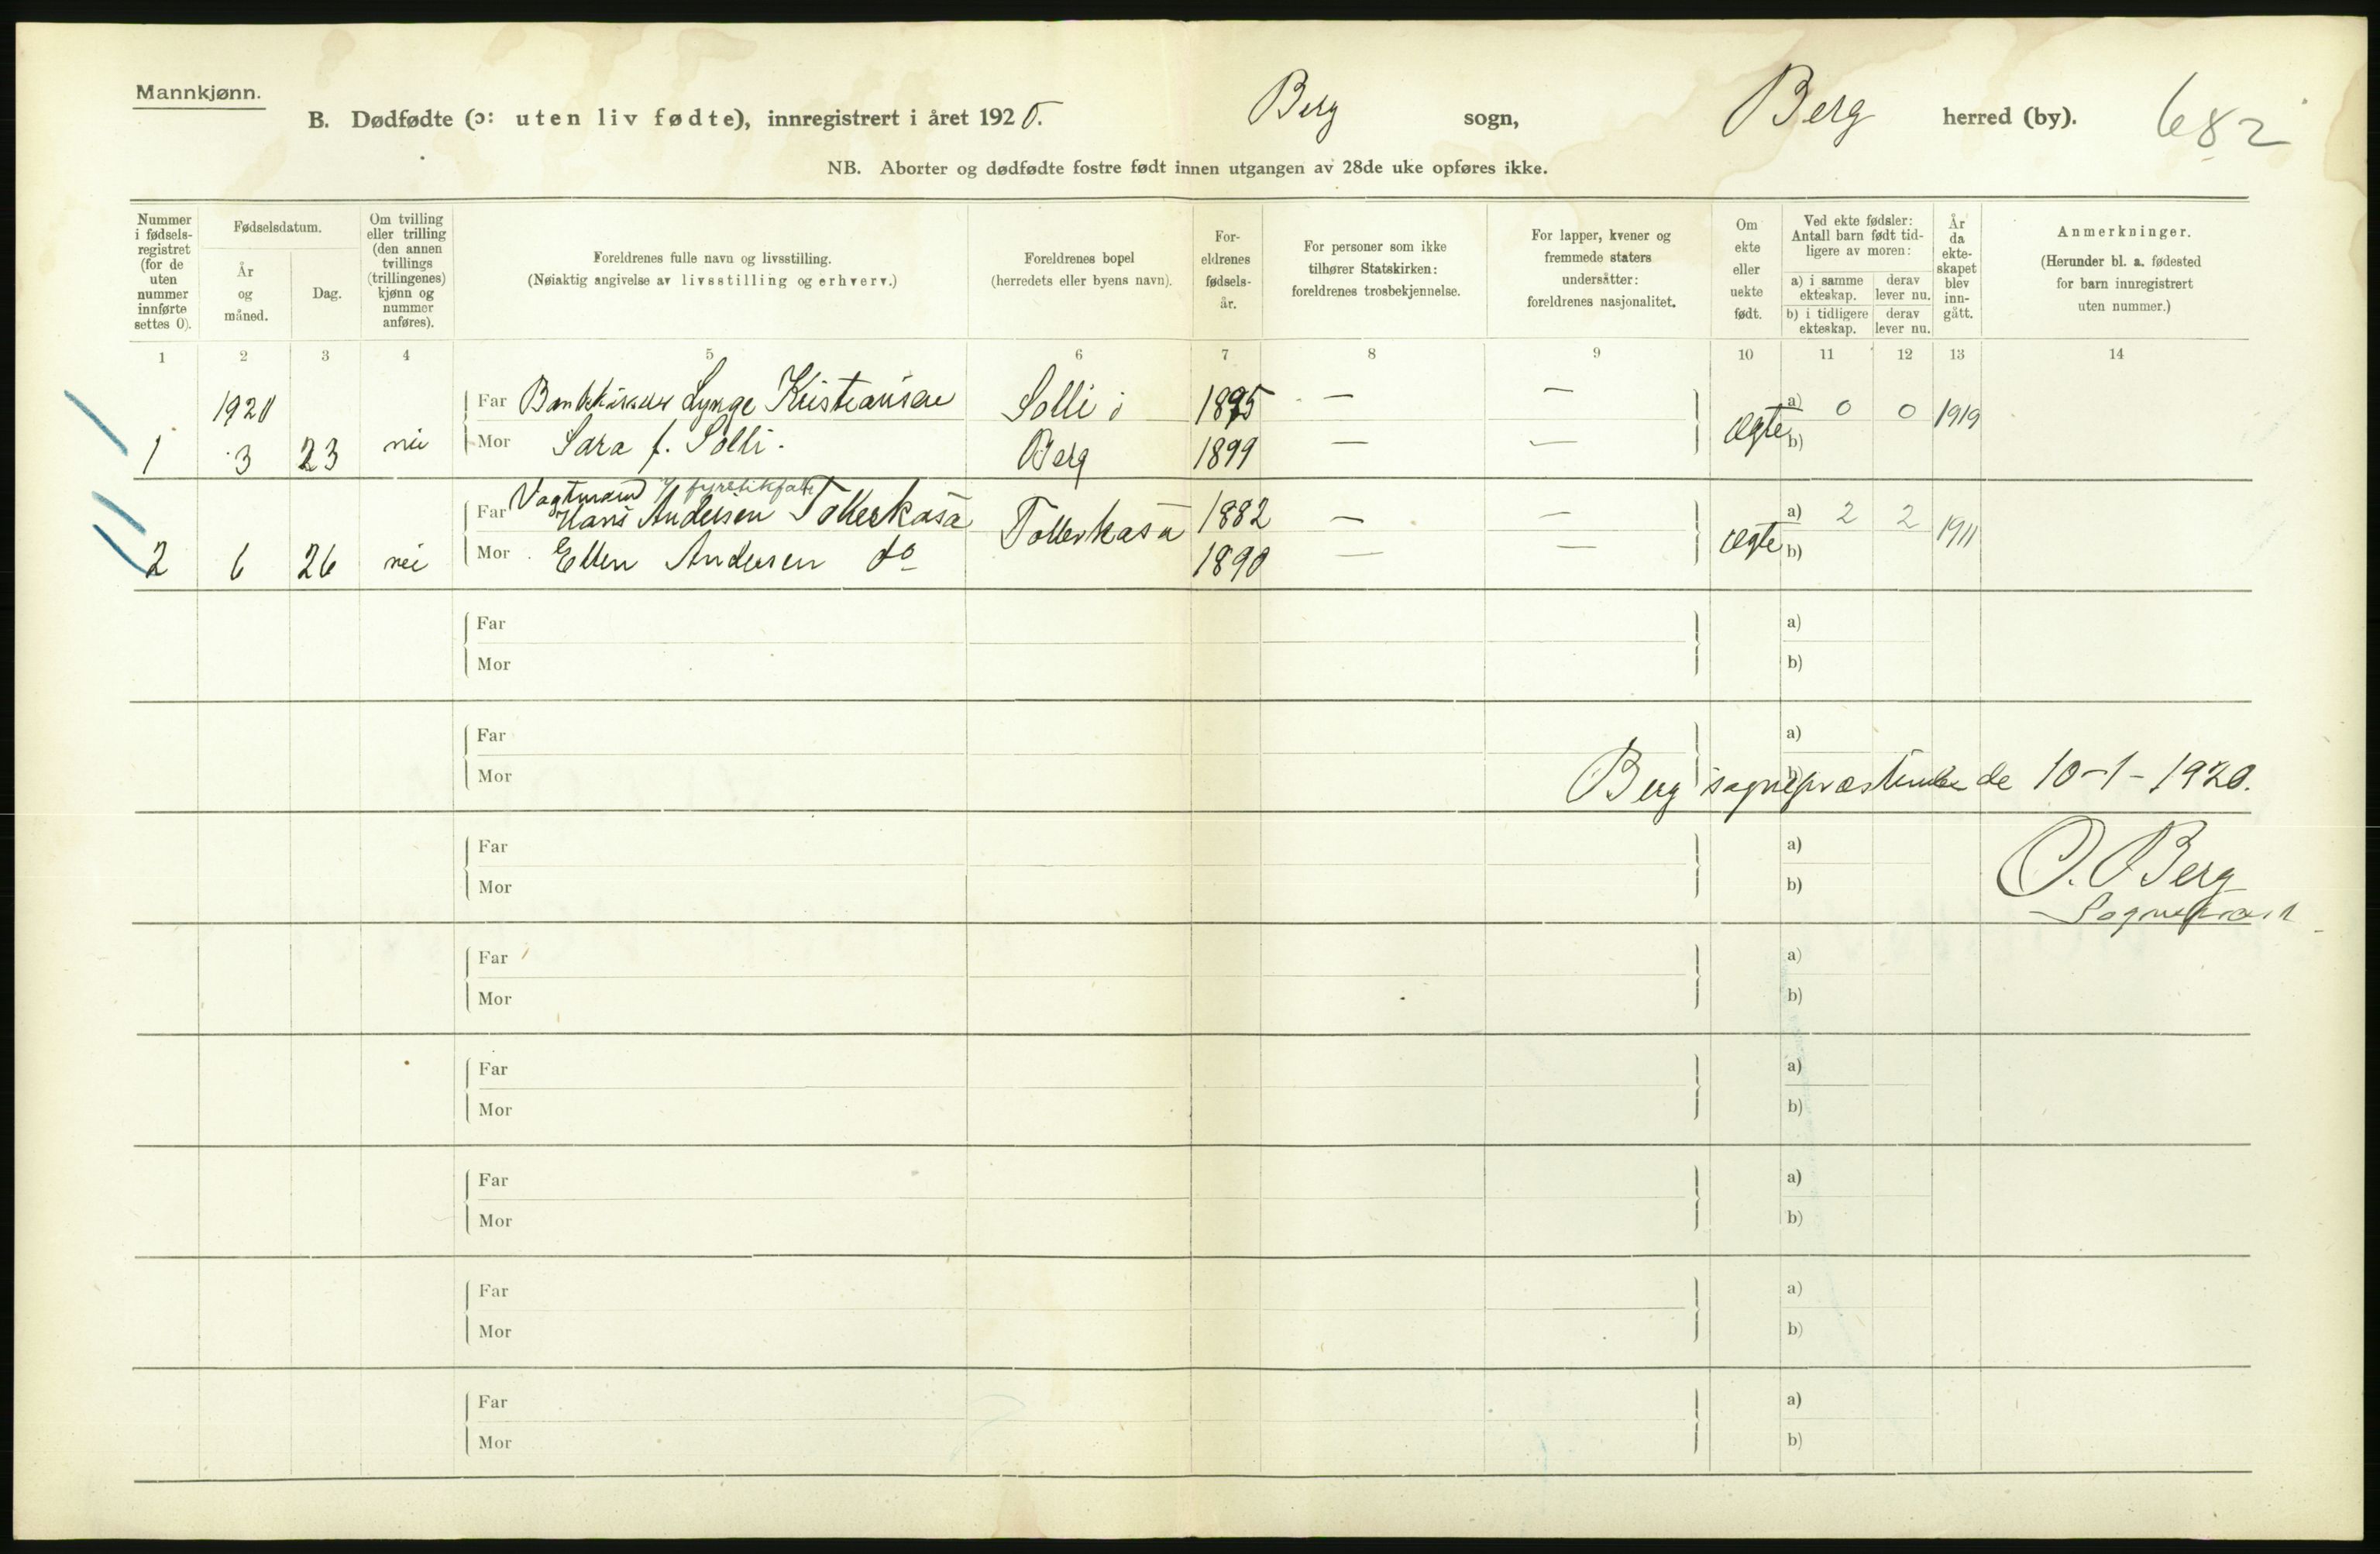 Mannkjønn.
B. Dødfødte (ɔ: uten liv fødte), innregistrert i året 1920. Berg sogn, Berg herred (by). 682
NB. Aborter og dødfødte fostre født innen utgangen av 28de uke opføres ikke.
Nummer i fødselsregistret (for de uten nummer innførte settes 0).
Fødselsdatum.
År og måned.
Dag.
Om tvilling eller trilling (den annen tvillings (trillingenes) kjønn og nummer anføres).
Foreldrenes fulle navn og livsstilling.
(Nøiaktig angivelse av livsstilling og erhverv.)
Foreldrenes bopel
(herredets eller byens navn).
Foreldrenes fødselsår.
For personer som ikke tilhører Statskirken: foreldrenes trosbekjennelse.
For lapper, kvener og fremmede staters undersåtter: foreldrenes nasjonalitet.
Om ekte eller uekte født.
Ved ekte fødsler: Antall barn født tidligere av moren:
a) i samme ekteskap. derav lever nu.
b) i tidligere ekteskap. derav lever nu.
År da ekteskapet blev inngått.
Anmerkninger.
(Herunder bl. a. fødested for barn innregistrert uten nummer.)
1 2 3 4 5 6 7 8 9 10 11 12 13 14
1920
Far Lynge Kristiansen Solli i 1895 — — a) 0 0 1919
1 3 23 nei Mor Sara f. Solli. Berg 1899 — — Ægte b)
Vagtmand
Far Hans Andersen Tollerkasa Tollerkasa 1882 — — a) 2 2 1911
2 6 26 nei Mor Ellen Andersen do 1890 — — Ægte b)
Far a)
Mor b)
Far a)
Mor b)
Berg sogneprestembede 10-1-1920.
Far a)
Mor b)
O. Berg
Sogneprest
Far a)
Mor b)
Far a)
Mor b)
Far a)
Mor b)
Far a)
Mor b)
Far a)
Mor b)